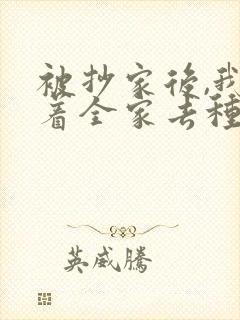 被抄家後,我
着全家去種
英威騰